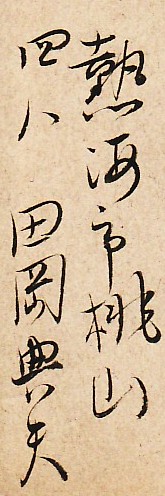 熱海市桃山
四八 田岡典夫